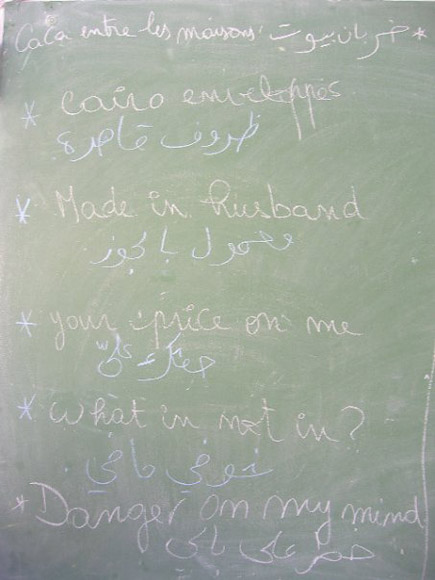 CaCa entre les maisons: خربان بيوت *
* Cairo enveloppes
ظروف قاهرة
* Made in husband
معمول بالجوز
* your price on me
حقك عليّ
* What in not in?
شو في ما في
* Danger on my mind
خطر على بالي